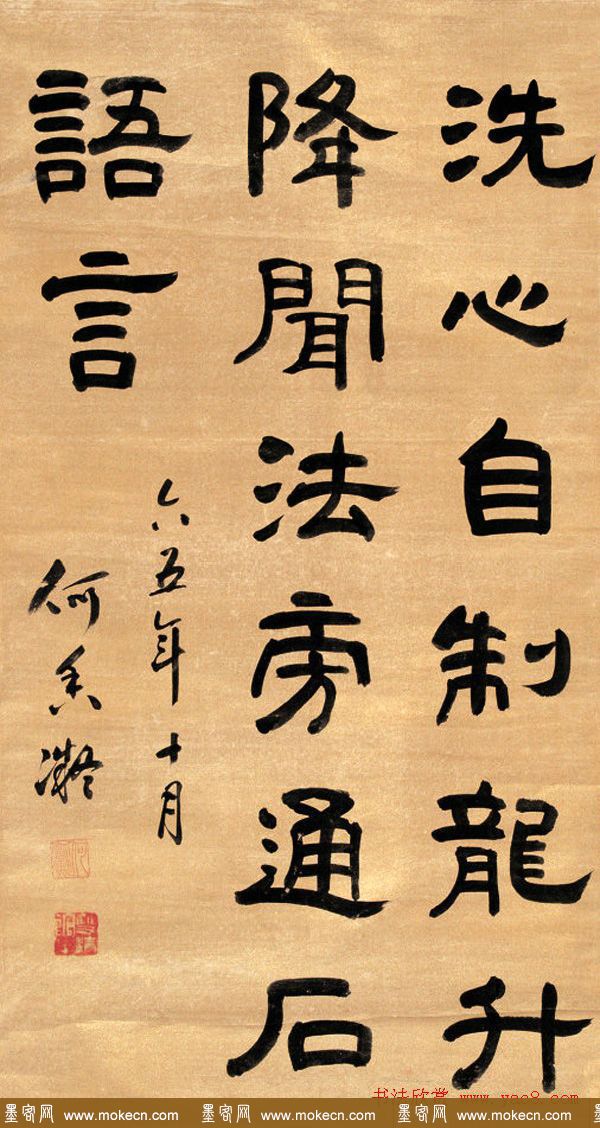 洗心自制龍升
降聞法旁通石
語言
六五年十月
何香凝
書法欣賞 www.yac8.com
墨客网 www.mokecn.com 墨客网 www.mokecn.com 墨客网 www.mokecn.com